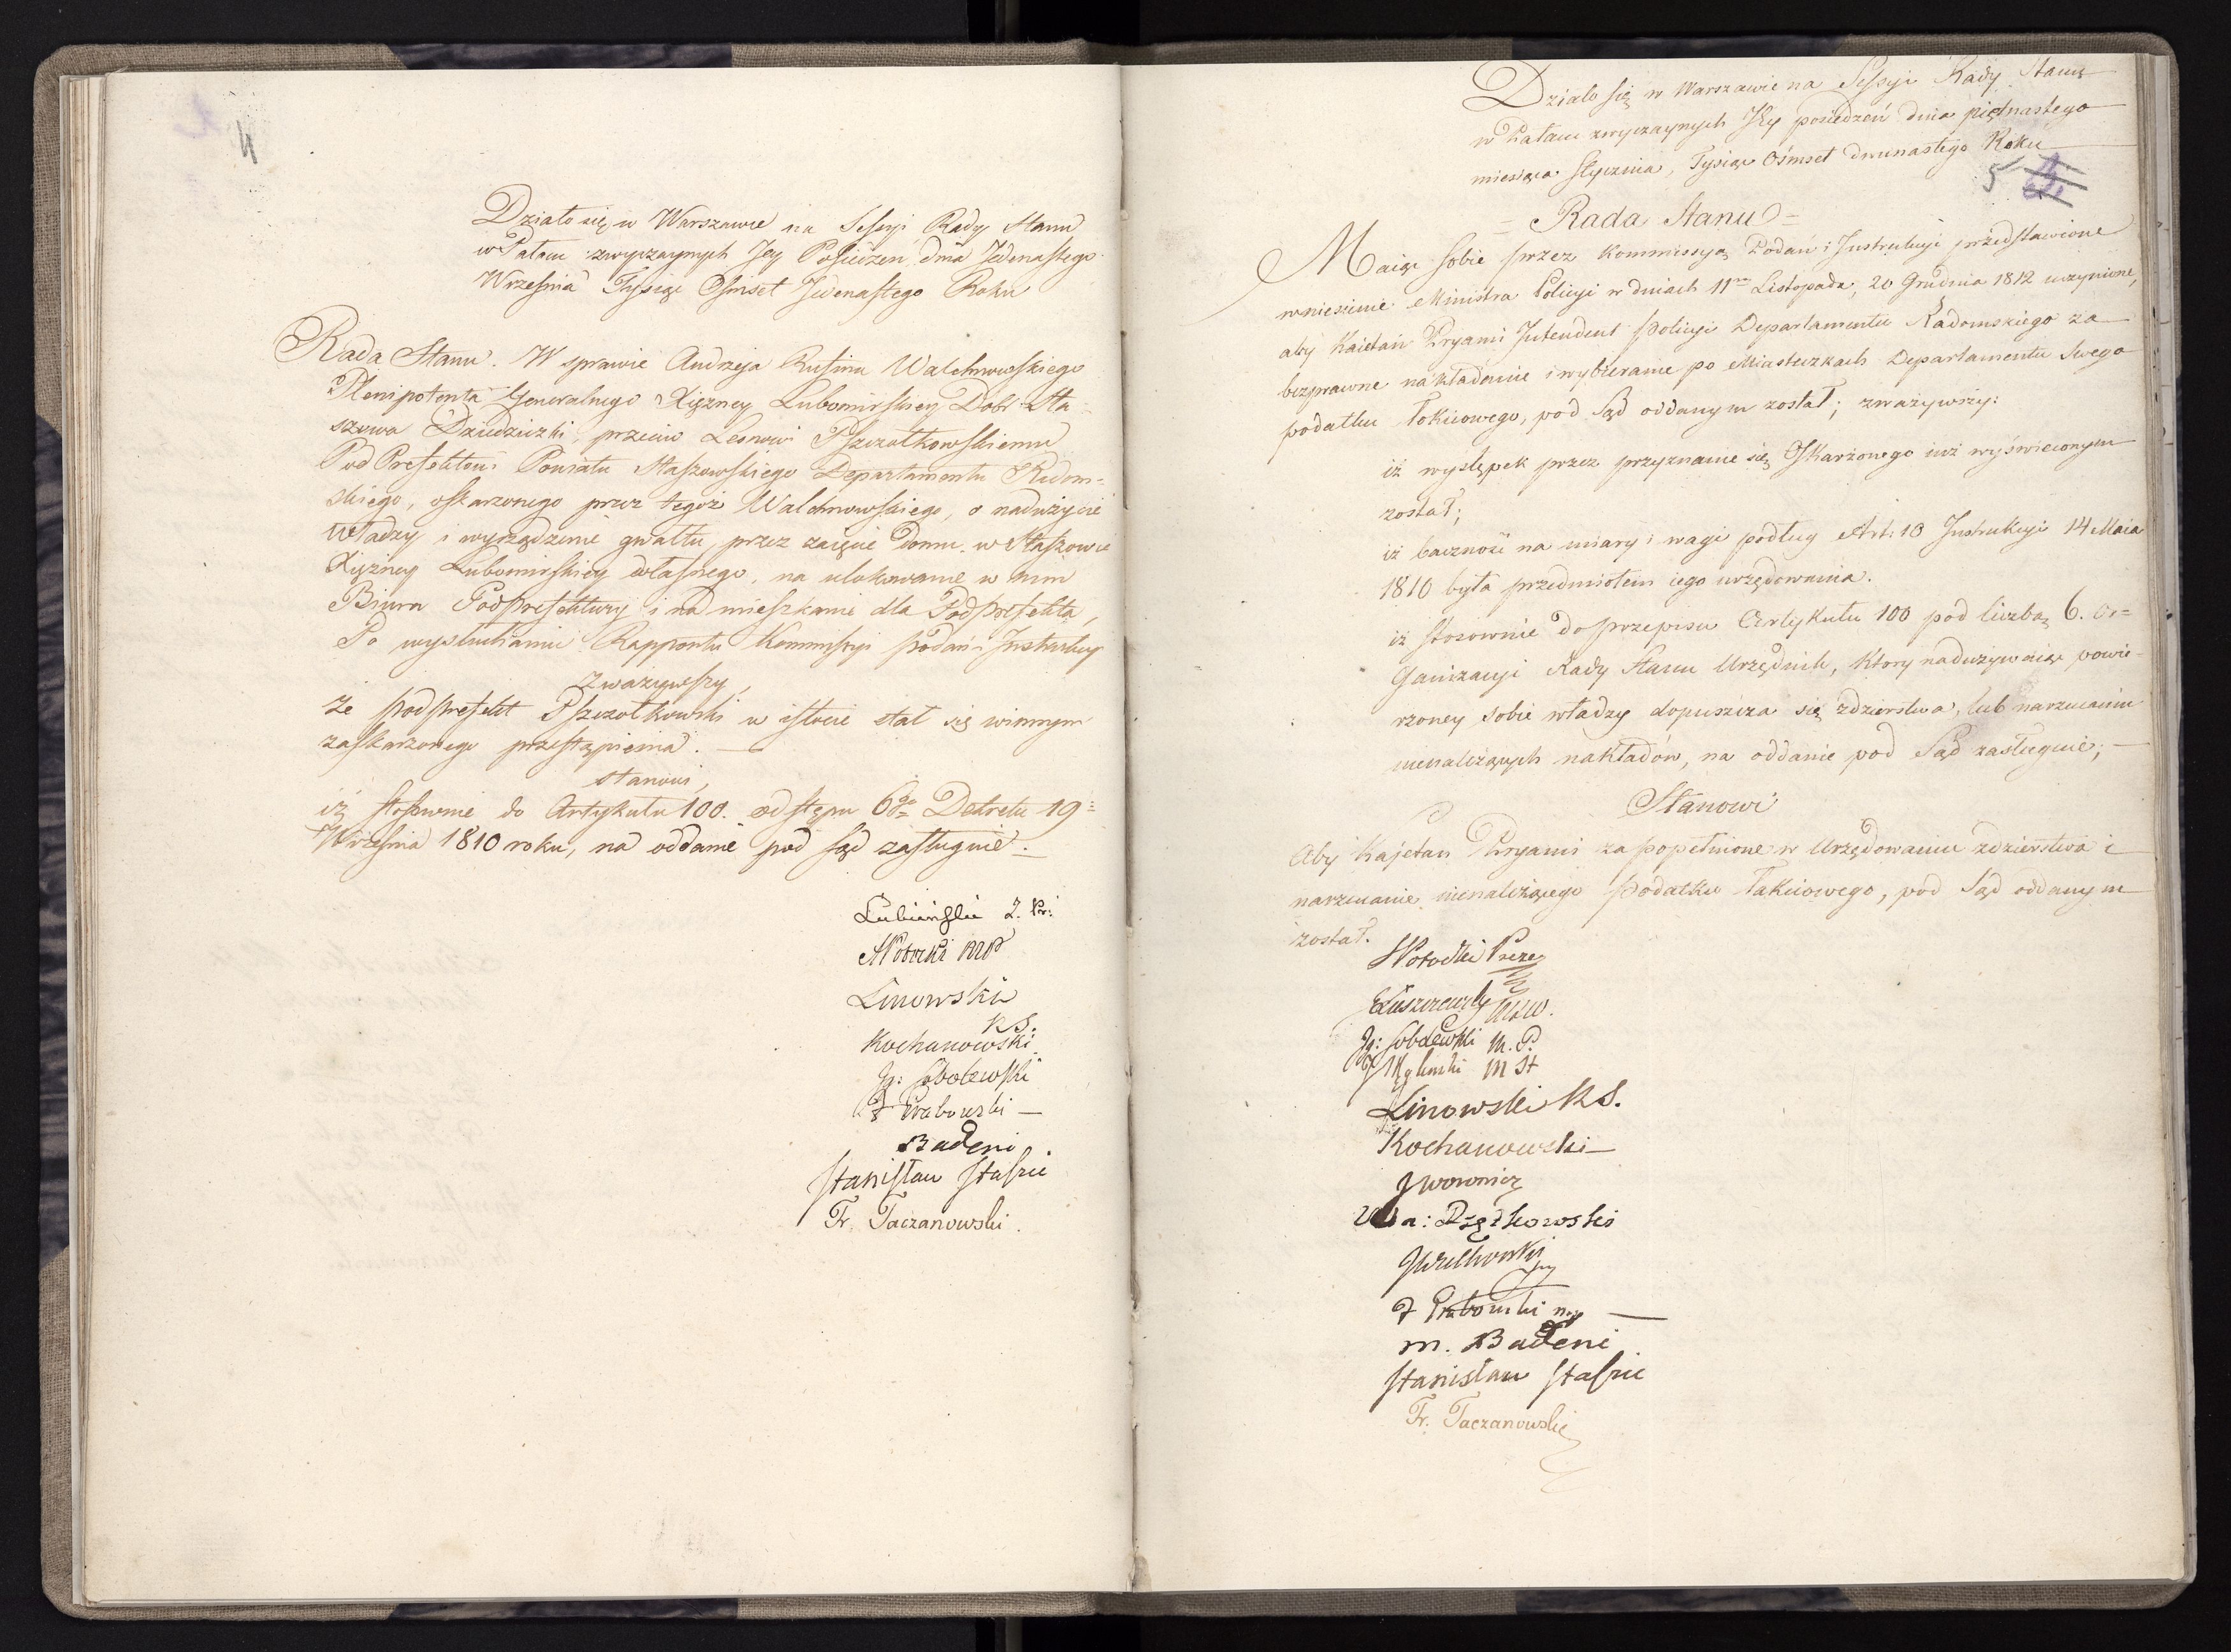 4
Działo się w Warszawie na Sessyi Rady Stanu
w Pałacu zwyczaynych Jey Posiedzeń dnia Jedenastego
Września Tysiąc Osmset Jedenastego Roku
Rada Stanu. W sprawie Andrzeja Rutina Walchnowskiego
Plenipotenta Generalnego Xiężney Lubomirskiey Dobr Sta-
szowa Dziedziczki, przeciw Leonowi Pszczołkowskiemu
Pod Prefektowi Powiatu Staszowskiego Departamentu Radom-
skiego, oskarzonego przez tegoż Walchnowskiego, o nadużycie
władzy i wyrządzenie gwałtu, przez zaięcie Domu w Staszowie
Xiężney Lubomirskiey własnego, na ulokowanie w nim
Biura Podprefektury i na mieszkanie dla Podprefekta,
Po wysłuchaniu Rapportu Kommissyi podań i Instrukcyi
Zważywszy,
że podprefekt Pszczołkowski w istocie stał się winnym
zaskarzonego przestąpienia. —
stanowi,
iż stosownie do Artykułu 100. odstępu 6go Dekretu 19=
Września 1810 roku, na oddanie pod sąd zasługuie. —
Lubieński Z. Pr:
SPotocki
Linowski
KS.
Kochanowski
Ig: Sobolewski
F Grabowski —
Badeni
Stanisław Staszic
Fr. Taczanowski.
Działo się w Warszawie na Sessyi Rady Stanu
w Pałacu zwyczaynych Jéy posiedzeń dnia piętnastego
miesiąca Stycznia, Tysiąc Ośmset dwunastego Roku
5
= Rada Stanu =
Maiąc sobie przez Kommissyą Podań i Instrukcyi przedstawione
wniesienie Ministra Policyi w dniach 11go Listopada, 20 Grudnia 1812 uczynione,
aby Kaietan Pryami Intendent policyi Departamentu Radomskiego za
bezprawne nakładanie i wybieranie po Miasteczkach Departamentu swego
podatku łokciowego, pod Sąd oddanym został; zważywszy:
iż występek przez przyznanie się Oskarżonego iuż wyświeconym
został;
iż baczność na miary i wagi podług Art: 10 Instrukcyi 14 Maia
1810 była przedmiotem iego urzędowania.
iż stosownie do przepisu Artykułu 100 pod liczbą 6. Or=
ganizacyi Rady Stanu Urzędnik, który nadużywaiąc powie-
rzoney sobie władzy dopuszcza się zdzierstwa, lub narzucaniu
nienależących nakładów, na oddanie pod Sąd zasługuie; —
Stanowi
Aby Kajetan Pryami za popełnione w Urzędowaniu zdzierstwa i
narzucanie nienależącego podatku Łokciowego, pod Sąd oddanym
został.
SPotocki Prezes
Łuszczewski
Ig: Sobolewski M. P.
Węgleński M St
Linowski KS.
Kochanowski —
Woronicz
Rzętkowski
F Grabowski —
M. Badeni
Stanisław Staszic
Fr. Taczanowski